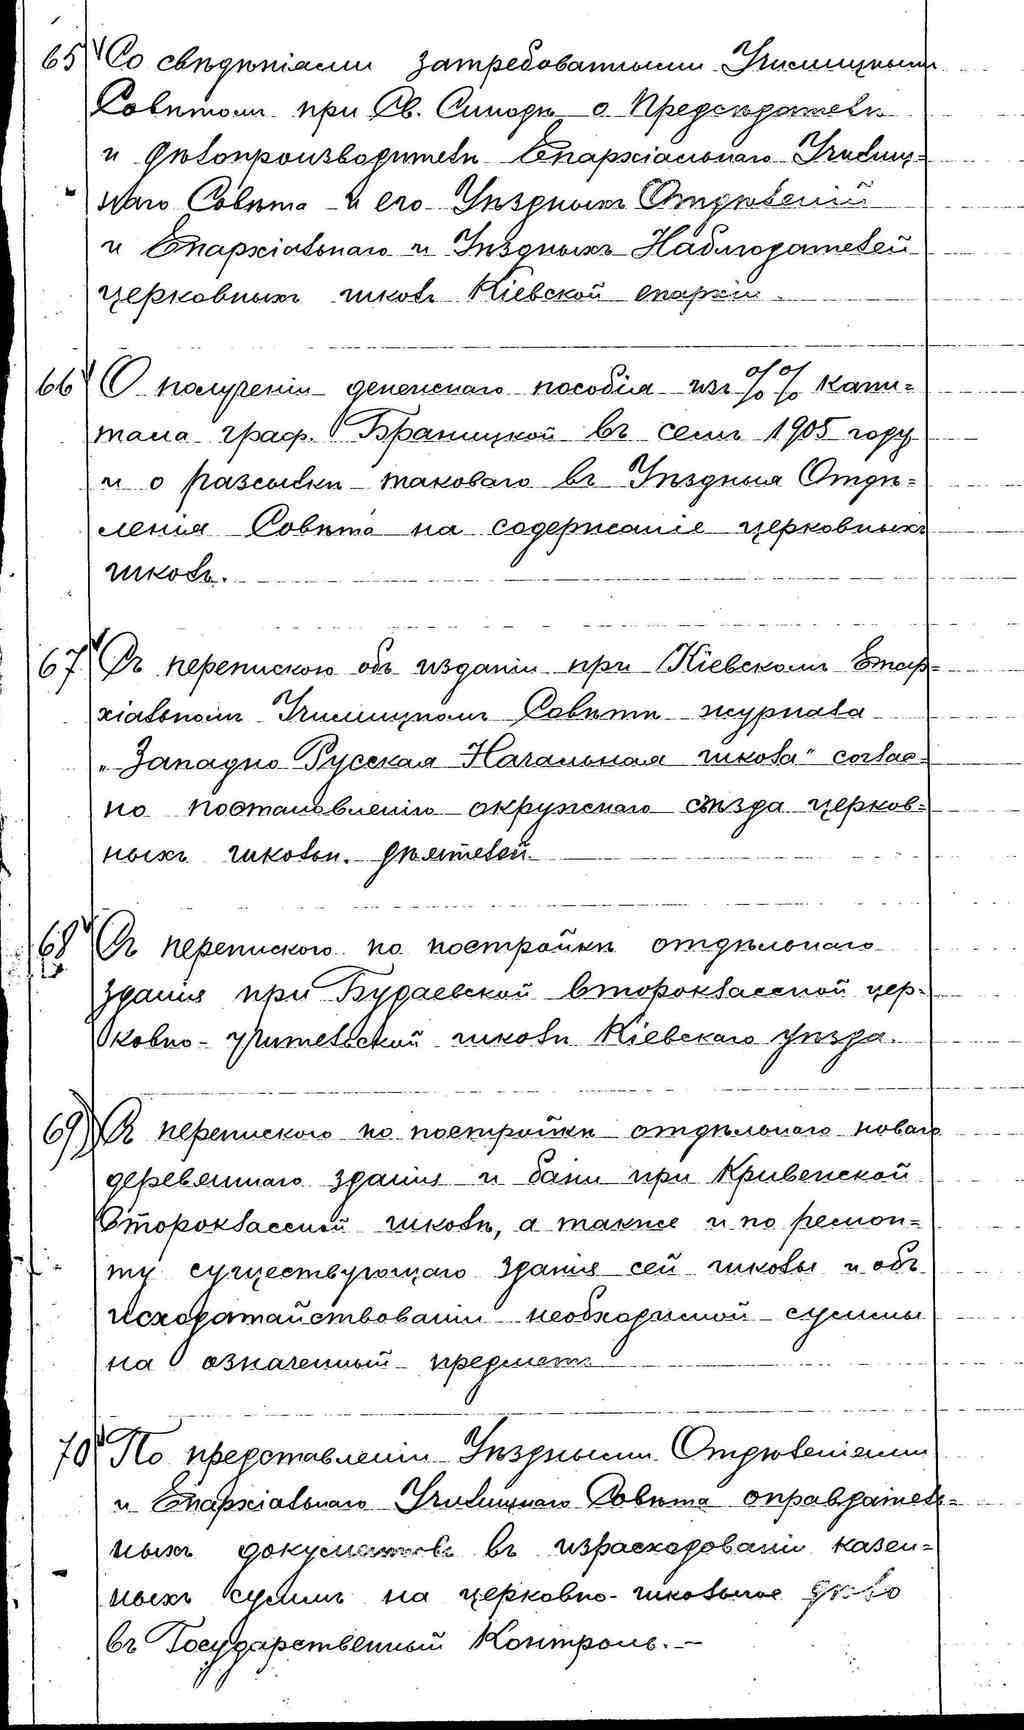 65 Со свѣдѣніями затребованными Училищнымъ
Совѣтомъ при Св. Синодѣ о Предсѣдателѣ
и дѣлопроизводителѣ Епархіальнаго Училищ=
наго Совѣта и его Уѣздныхъ Отдѣленій
и Епархіальнаго и Уѣздныхъ Наблюдателей
церковныхъ школъ Кіевской епархіи.
66 О полученіи денежнаго пособія изъ %% капи=
тала граф. Браницкой въ семъ 1905 году
и о разсылкѣ таковаго въ Уѣздныя Отдѣ=
ленія Совѣта на содержаніе церковныхъ
школъ.
67 Съ перепискою объ изданіи при Кіевскомъ Епар=
хіальномъ Училищномъ Совѣтѣ журнала
„Западно Русская Начальная школа" соглас=
но постановленію окружнаго съѣзда церков=
ныхъ школьн. дѣятелей.
68 Съ перепискою по постройкѣ отдѣльнаго
зданія при Будаевской второклассной цер=
ковно-учительской школѣ Кіевскаго уѣзда.
69) Съ перепискою по постройкѣ отдѣльнаго новаго
деревяннаго зданія и бани при Кривенской
второклассной школѣ, а также и по ремон=
ту существующаго зданія сей школы и объ
исходатайствованіи необходимой суммы
на означенный предметъ
70 По представленіи Уѣздными Отдѣленіями
и Епархіальнаго Училищнаго Совѣта оправдатель=
ныхъ документовъ въ израсходованіи казен=
ныхъ суммъ на церковно-школьное дѣло
въ Государственный Контроль.—